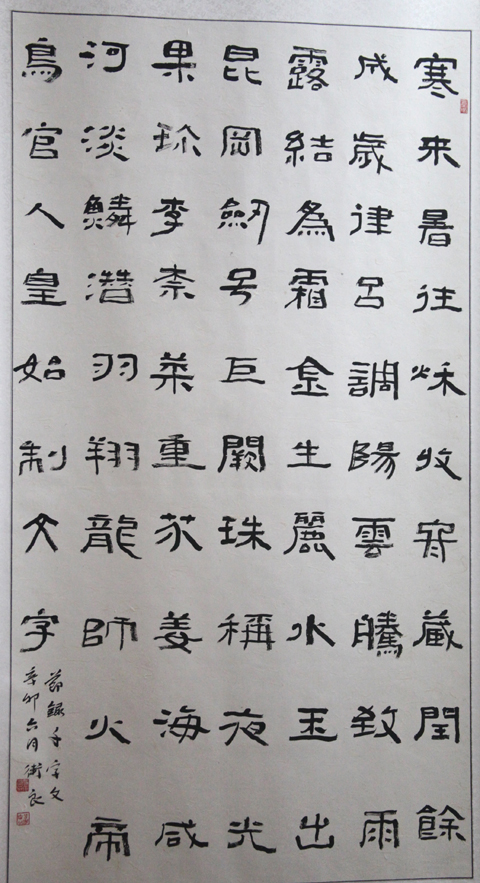 寒来暑往秌收冬藏閏餘
成歲律呂調陽雲騰致雨
露結為霜金生麗水玉出
昆岡劒号巨闕珠稱夜光
果珍李柰菜重芥姜海咸
河淡鱗潜羽翔龍師火帝
鳥官人皇始制文字
節錄千字文
辛卯六月